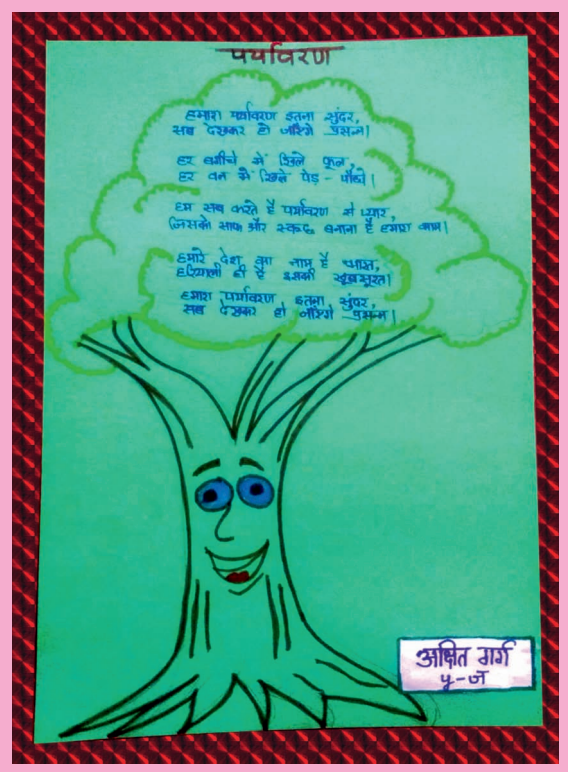 पर्यावरण
हमारा पर्यावरण इतना सुंदर,
सब देखकर हो जाएँगे प्रसन्न।
हर बगीचे में खिले फूल,
हर वन में खिले पेड़ - पौधे।
हम सब करते हैं पर्यावरण से प्यार,
जिसको साफ और स्वच्छ बनाना है हमारा काम।
हमारे देश का नाम है भारत,
हरियाली ही है इसकी खूबसूरत।
हमारा पर्यावरण इतना सुंदर,
सब देखकर हो जाएँगे प्रसन्न।
अक्षित गर्ग
५-ज